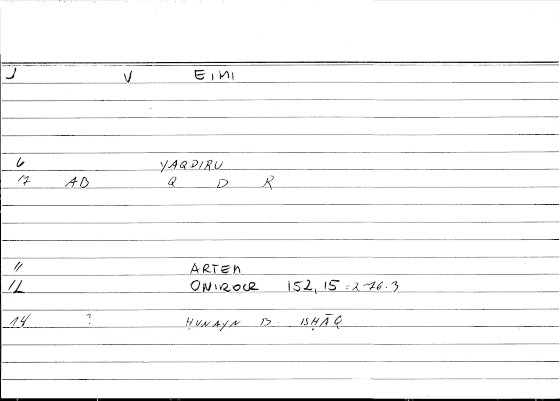 J V EINI
6 YAQDIRU
17 AD Q D R
11 ARTEM
12 ONIROCR 152, 15 = 2-76.3
14 ? ḤUNAYN B. ISḤĀQ